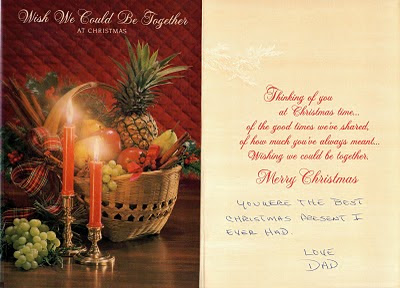 Wish We Could Be Together
AT CHRISTMAS
Thinking of you
at Christmas time...
of the good times we've shared,
of how much you've always meant...
Wishing we could be together.
Merry Christmas
YOU WERE THE BEST
CHRISTMAS PRESENT I
EVER HAD.
LOVE
DAD